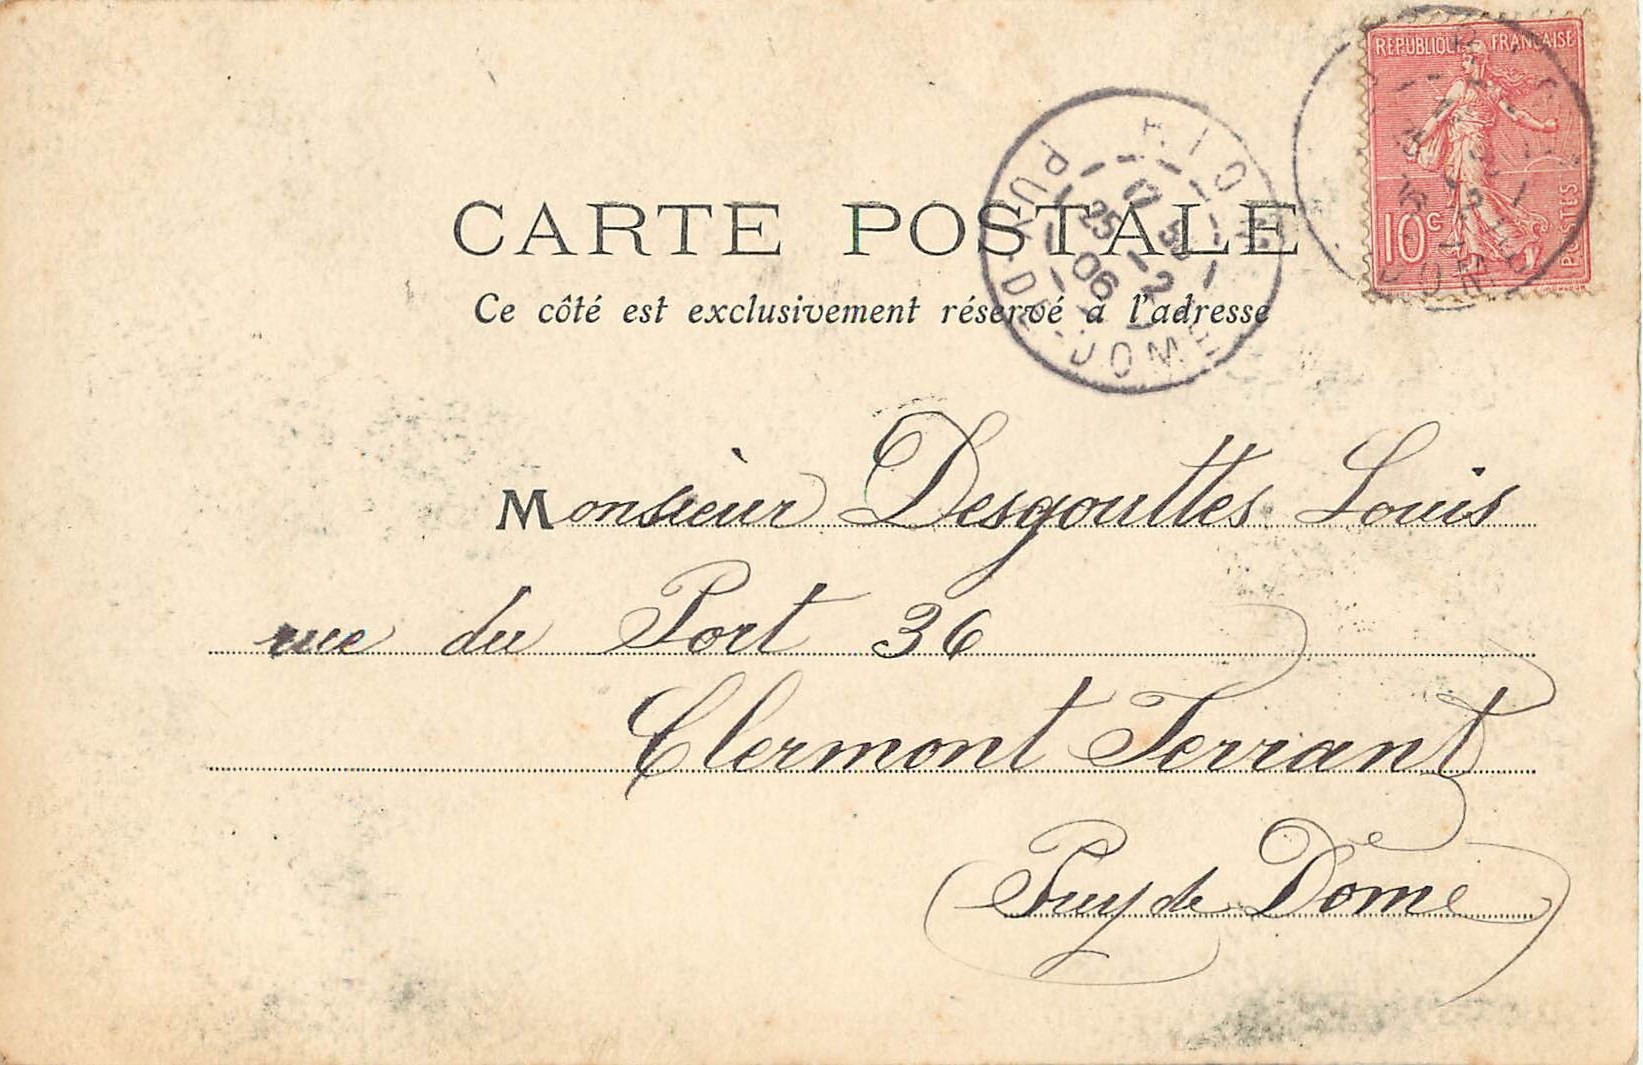 REPUBLIQUE FRANÇAISE
10c
POSTES
RIOM
PUY-DE-DOME
12 50
25 - 2
06
CARTE POSTALE
Ce côté est exclusivement réservé à l'adresse
Monsieur Desgouttes Louis
rue du Port 36
Clermont Ferrant
(Puy de Dôme)